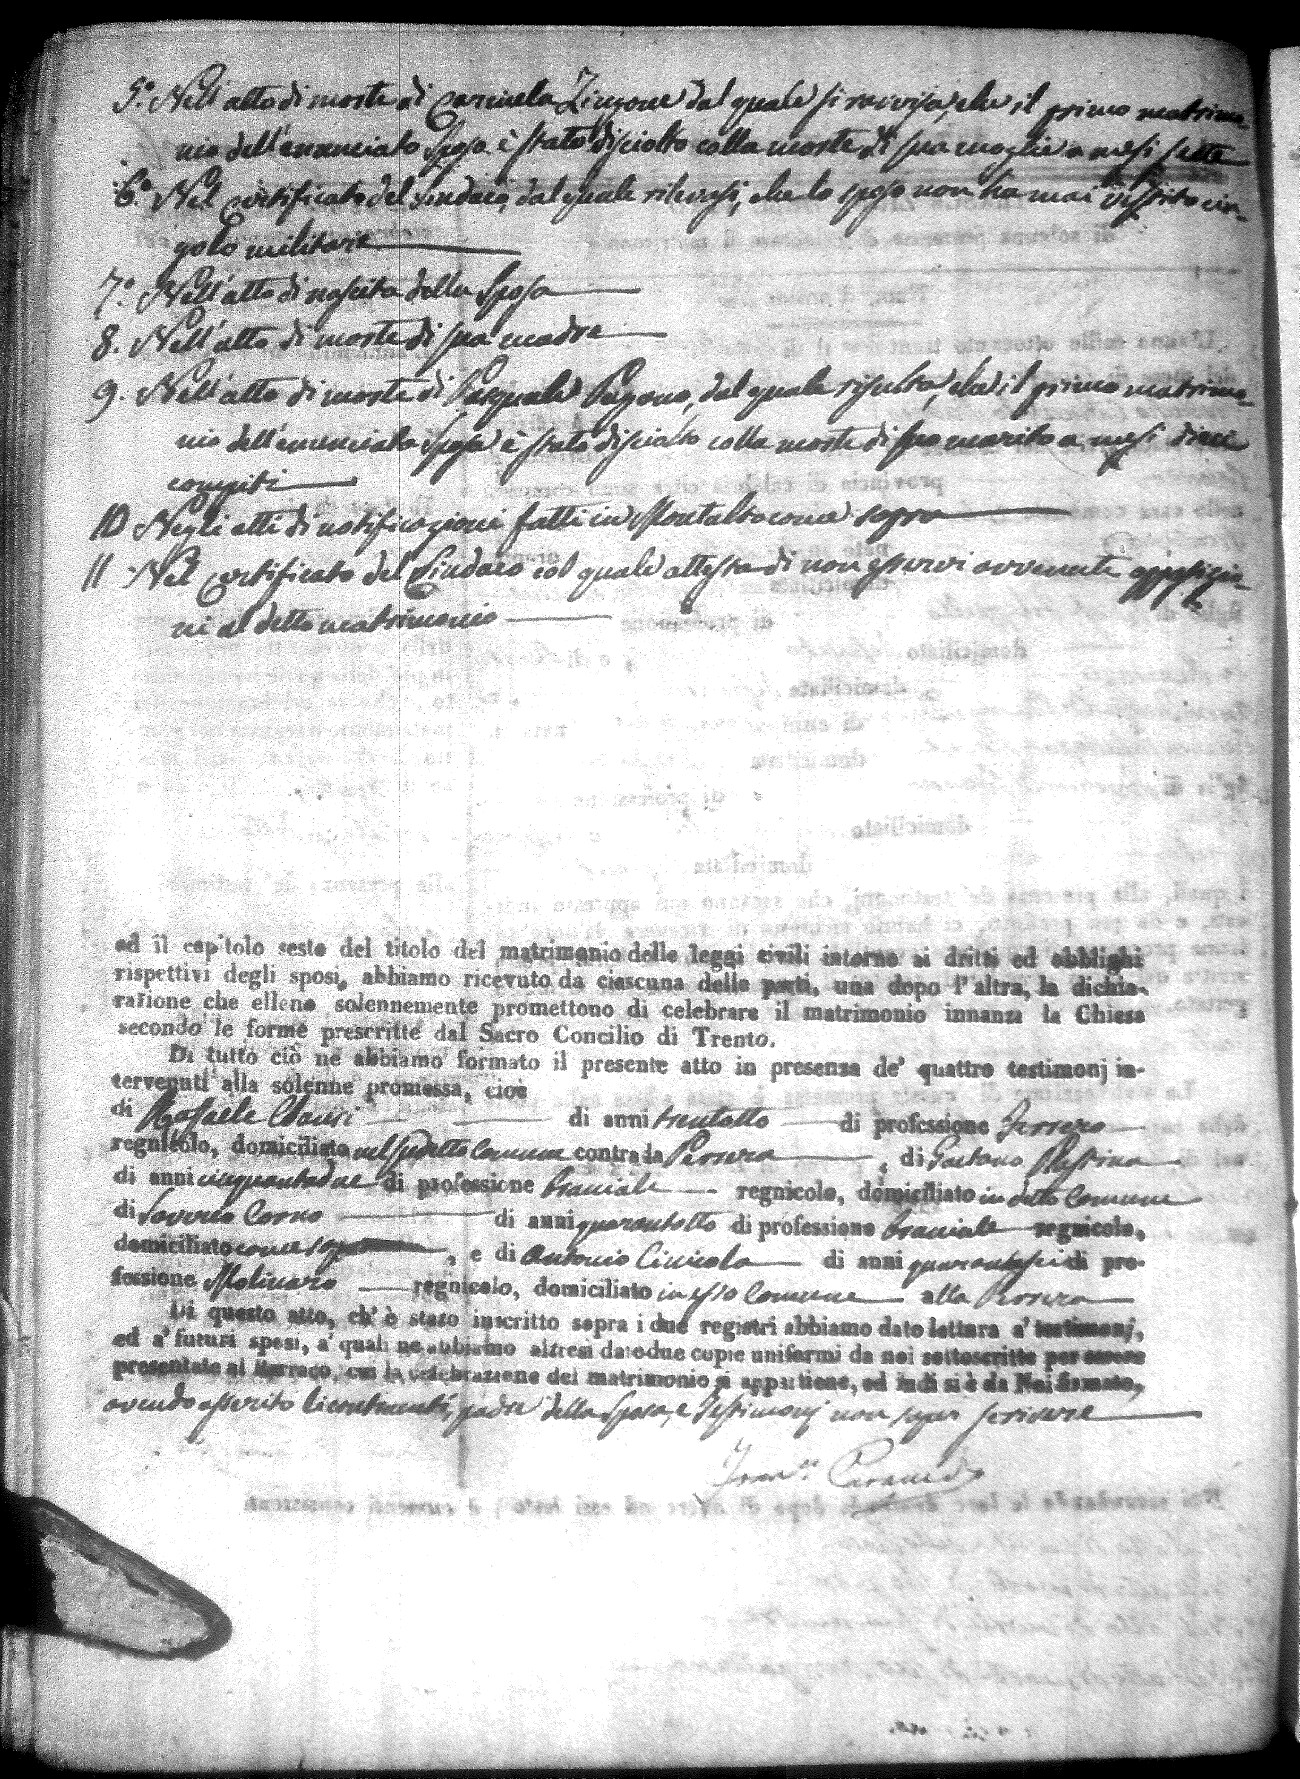 5.° Nell'atto di morte di Carmela Zingone dal quale si ravvisa, che il primo matrimo-
nio dell'enunciato Sposo è stato disciolto colla morte di sua moglie a mesi sette
6.° Nel certificato del Sindaco, dal quale rilevasi, che lo sposo non ha mai vestito cin-
golo militare
7.° Nell'atto di nascita della Sposa
8. Nell'atto di morte di sua madre
9. Nell'atto di morte di Pasquale Pagano, dal quale risulta, che il primo matrimo-
nio dell'enunciata Sposa è stato disciolto colla morte di suo marito a mesi dieci
compiti
10 Negli atti di notificazione fatti in Montalto come sopra
11 Nel certificato del Sindaco col quale attesta di non esservi avvenute opposizio-
ni al detto matrimonio
ed il capitolo sesto del titolo del matrimonio delle leggi civili intorno ai dritti ed obblighi
rispettivi degli sposi, abbiamo ricevuto da ciascuna delle parti, una dopo l'altra, la dichia-
razione che elleno solennemente promettono di celebrare il matrimonio innanzi la Chiesa
secondo le forme prescritte dal Sacro Concilio di Trento.
Di tutto ciò ne abbiamo formato il presente atto in presenza de' quattro testimonj in-
tervenuti alla solenne promessa, cioè
di Raffaele di anni trentotto di professione Ferraro
regnicolo, domiciliato nel sudetto Comune contrada , di Gaetano
di anni cinquantadue di professione bracciale regnicolo, domiciliato in detto Comune
di Saverio di anni quarantotto di professione bracciale regnicolo,
domiciliato come sopra , e di Antonio di anni quarantasei di pro-
fessione Molinaro regnicolo, domiciliato in esso Comune alla
Di questo atto, ch' è stato inscritto sopra i due registri abbiamo dato lettura a' testimonj,
ed a' futuri sposi, a' quali ne abbiamo altresì date due copie uniformi da noi sottoscritte per essere
presentate al Parroco, cui la celebrazione del matrimonio si appartiene, ed indi si è da Noi firmato,
avendo asserito li contraenti, padre della Sposa, e Testimonj non saper scrivere